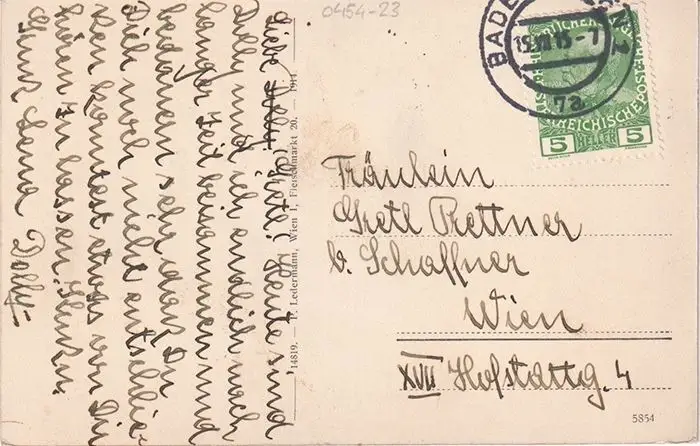 0454-23
Liebe Gretl! Heute sind
Dolly und ich endlich nach
langer Zeit beisammen und
bedauern sehr daß Du
Dich noch nicht entschlie-
ßen konntest etwas von Dir
hören zu lassen.
Gruß Lena Dolly
14819. — P. Ledermann, Wien I, Fleischmarkt 20. — 1914.
BADEN
15 VII 15-7
7a
5 HELLER 5
Fräulein
Gretl Prettner
b. Schaffner
Wien
XVII Hofstattg. 4
5854